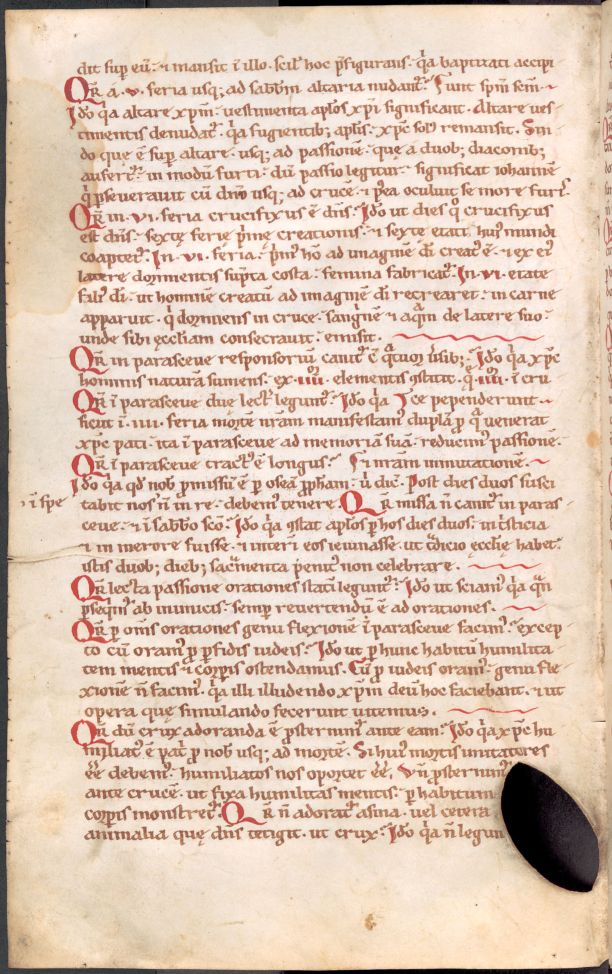 dit sup eū · ⁊ mansit ī illo · scil' hoc p̄figurans · q̇a baptizati accipi-
Qr̄ ā · v · feria usq; ad sabbm̄ altaria nudant᷒ · unt spm̄ scm̄ ·
Ido q̇a altare xpm̄ · uestimenta aplos xp̄i significant · Altare ues-
timentis denudat᷒ · q̇a fugientib; aplis · xp̄c sol᷒ remansit · Sin-
do que ē sup altare · usq; ad passionē · que a duob; diaconib;
aufert᷒ · in modū furti · dū passio legitur · significat iohannē
q̇ pseuerauit cū dno usq; ad crucē · ⁊ pea oculuit se more furis
Qr̄ in · vi · feria crucifixus ē dns · Ido ut dies q̊ crucifixus
est dns · sexte ferie p̄me creationis · ⁊ sexte etati hui᷒ mundi
coaptet᷒ · In · vi · feria · p̄m᷒ hō ad imaginē di creat᷒ ē · ⁊ ex ei᷒
latere dormientis supta costa · femina fabricat᷒ · In · vi · etate
fili᷒ di · ut hominē creatū ad imaginē di recrearet · in carne
apparuit · q̇ dormiens in cruce · sangnē ⁊ aq̄m de latere suo
unde sibi eccliam consecrauit · emisit ·
Qr̄ in parasceue responsoriū canit᷒ ē q̄tuor ūsib; · Ido q̇a xp̄c
hominis naturā sumens · ex · iiii · elementis ꝯstitit · q̇ · iiii · ī cru
Qr̄ ī parasceue due lect᷒ legunt᷒ · Ido q̇a ce pependerunt ·
sicut ī · iiii · feria mortē nrām manifestam᷒ duplā p q̄ uenerat
xp̄c pati · ita ī parasceue ad memoriā suā reducim᷒ passionē ·
Qr̄ ī parasceue tract᷒ ē longus · nrām inuitationē ·
Ido q̇a qd nob pmissū ē p oseā ppham · u dic᷒ · Post dies duos susci
· ī spe tabit nos n̄ in re · debem᷒ tenere · Qr̄ missa n̄ canit᷒ in paras
ceue · ⁊ ī sabbo sco · Ido q̇a ꝯstat aplos p hos dies duos · in t̄sticia
⁊ in merore fuisse · ⁊ interī eos ieiunasse · ut t̄dicio ecclie habet ·
istis duob; dieb; sacmenta penit᷒ non celebrare ·
Qr̄ lecta passione orationes statī legunt᷒ · Ido ut sciam᷒ q̇a q̄n
pseqm᷒ ab inimicis · semp reuertendū ē ad orationes ·
Qr̄ p om̄s orationes genu flexionē ī parasceue facim᷒ · excep-
to cū oram᷒ p pfidis iudeis · Ido ut p hunc habitū humilita-
tem mentis ⁊ corpis ostendamus · Cū p iudeis oram᷒ · genu fle-
xionē n̄ facim᷒ · q̇a illi illudendo xpm̄ deū hoc faciebant · ⁊ ut
opera que simulando fecerunt uitemus ·
Qr̄ dū crux adoranda ē psternim᷒ ante eam · Ido q̇a xp̄c hu
miliat᷒ ē pat p nob usq; ad mortē · Si hui᷒ mortis imitatores
ēē debem᷒ · humiliatos nos oportet ēē · Vn̄ psternim᷒
ante crucē · ut fixa humilitas mentis · p habitum
corpis monstret᷒ · Qr̄ n̄ adorat᷒ asina · uel cetera
animalia que dns tetigit · ut crux · Ido q̇a n̄ legun